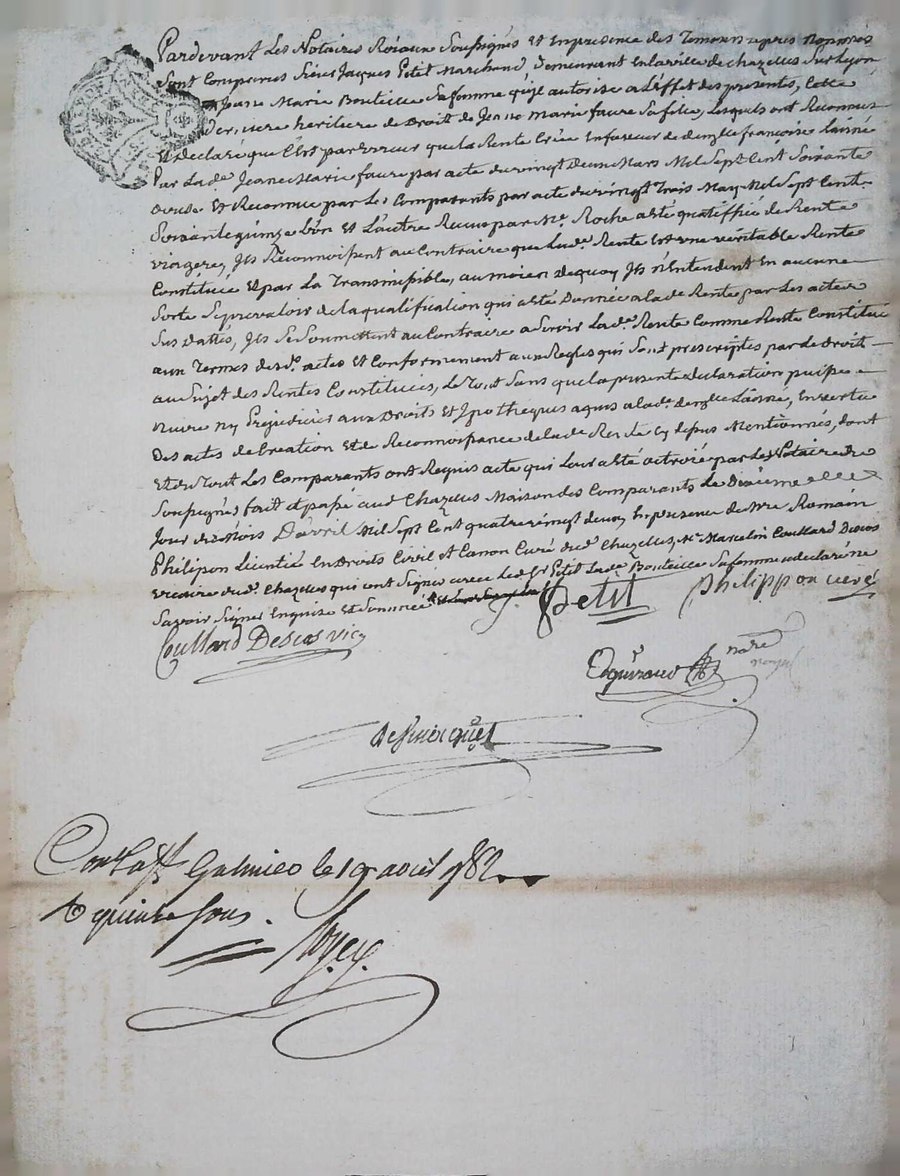 Pardevant Les Notaires Roiaux Soussignés Et En presence des Temoins apres Nommés
Sont Comparus Sieur Jacques Petit Marchand, demeurant En la ville de chazelles Sur Lyon
Jeane Marie Bouteille Sa femme qu'il autorise a L'Effet des presentes, Cette
derniere heritiere de Droit de Jeane marie faure Sa fille, Lesquels ont Reconnus
Et declaré que C'Est par Erreur que la Rente Créée En faveur de françoise Lainné
Par Lade. Jeane Marie faure par acte du vingt Deux Mars Mil Sept Cent Soixante
douse Et Reconnue par Les Comparants par acte du vingt Trois May Mil Sept Cent
Soixante quinze L'un Et L'autre Recus par Me. Roche a été qualiffiée de Rente
viagere, Ils Reconnoissent au Contraire que Lade. Rente Est une veritable Rente
Constituee Et par La Transmissible, au moien de quoy Ils n'Entendent En aucune
Sorte Se prevaloir de la qualification qui a été Donnée a lade Rente par Les actes
Sus dattés, Ils Se Soumettent au Contraire a Servir Lade. Rente Comme Rente Constituée
aux Termes desd. actes Et Conformement aux Regles qui Sont prescriptes par Le Droit
au Sujet des Rentes Constituées, Le Tout Sans que la presente declaration puisse
Nuire ny Prejudicier aux Droits Et Ipotheques aquis a lade. Lainné, En vertu
Des actes de Creation Et de Reconnoissance de lade Rente Cy dessus Mentionnés, dont
Et du Tout Les Comparants ont Requis acte qui Leur a été octroié par Les Notaires
Soussignés fait Et passé aud Chazelles Maison des Comparants Le Dixieme
Jour du Mois D'avril Mil Sept Cent quatre vingt deux En presence de Mre Romain
Philipon Licentié En Droits Civil Et Canon Curé dud. Chazelles, Me. Marcelin Coullard Descos
vicaire dud. Chazelles qui ont Signés avec Led. Sr Petit Lade Bouteille Sa femme a declaré ne
Savoir Signer Enquise Et Sommée
J. Petit Philippon curé
Coullard Descos vic.
nore
Cont. a St Galmier le 19 avril 1782
R quinze sous.